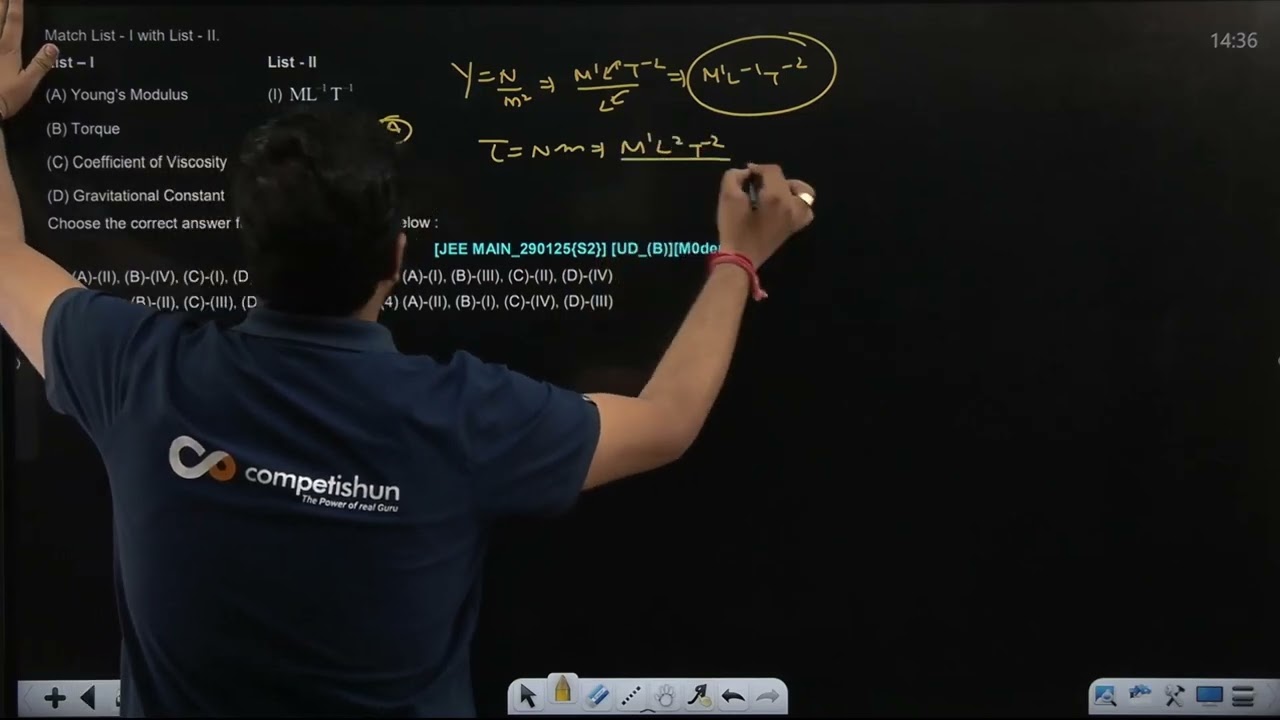 Match List - I with List - II.
14:36
List – I List - II
(A) Young's Modulus (I) ML⁻¹T⁻¹
(B) Torque
(C) Coefficient of Viscosity
(D) Gravitational Constant
Choose the correct answer f elow :
[JEE MAIN_290125{S2}] [UD_(B)][M0de
(A)-(II), (B)-(IV), (C)-(I), (D (A)-(I), (B)-(III), (C)-(II), (D)-(IV)
(B)-(II), (C)-(III), (D (4) (A)-(II), (B)-(I), (C)-(IV), (D)-(III)
Y = N/m² ⇒ M¹L¹T⁻²/L² ⇒ M¹L⁻¹T⁻²
τ = N m ⇒ M¹L²T⁻²
competishun
The Power of real Guru